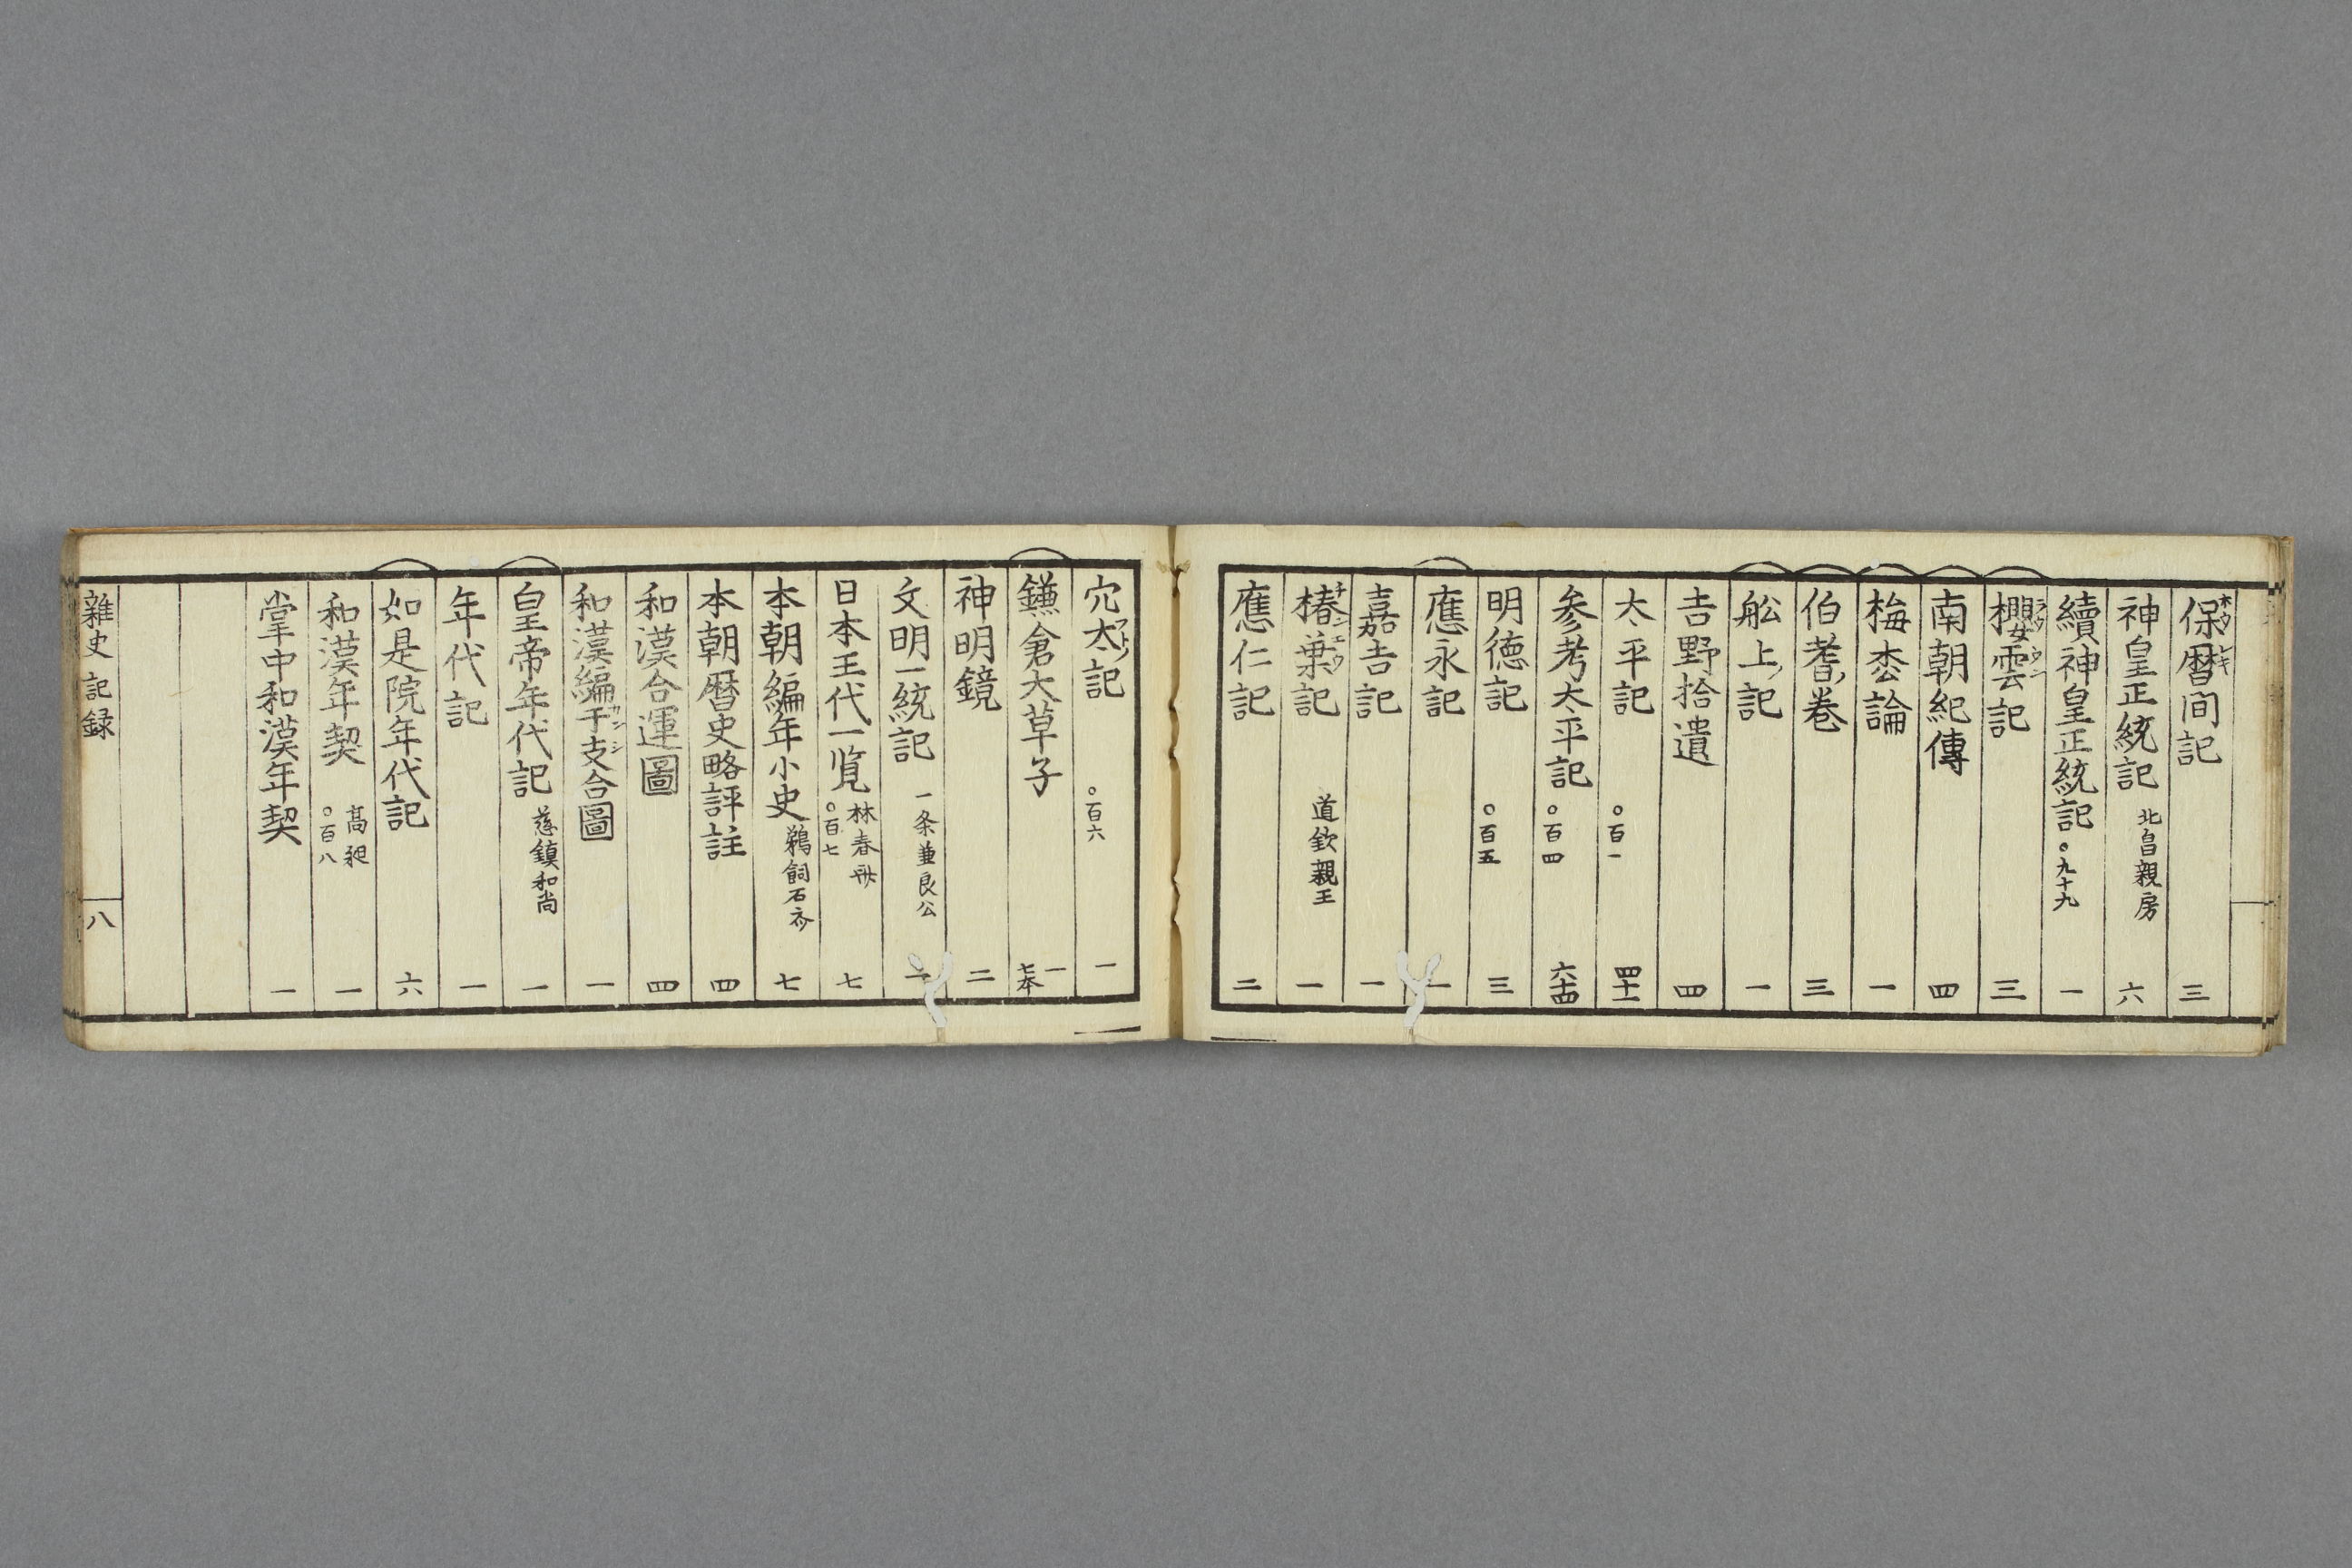 保暦間記 三
神皇正統記 北畠親房 六
續神皇正統記 ○九十九 一
櫻雲記 三
南朝紀傳 四
梅枩論 一
伯耆巻 三
舩上記 一
吉野拾遺 四
太平記 ○百一 四十一
参考太平記 ○百四 六十四
明徳記 ○百五 三
應永記 一
嘉吉記 一
椿葉記 道欽親王 一
應仁記 二
穴太記 ○百六 一
鎌倉大草子 一 七本
神明鏡 二
文明一統記 一条兼良公 一
日本王代一覧 林春斎 ○百七 七
本朝編年小史 鵜飼石斎 七
本朝暦史略評註 四
和漢合運圖 四
和漢編年干支合圖 一
皇帝年代記 慈鎮和尚 一
年代記 一
如是院年代記 六
和漢年契 髙昶 ○百八 一
掌中和漢年契 一
雜史 記録 八